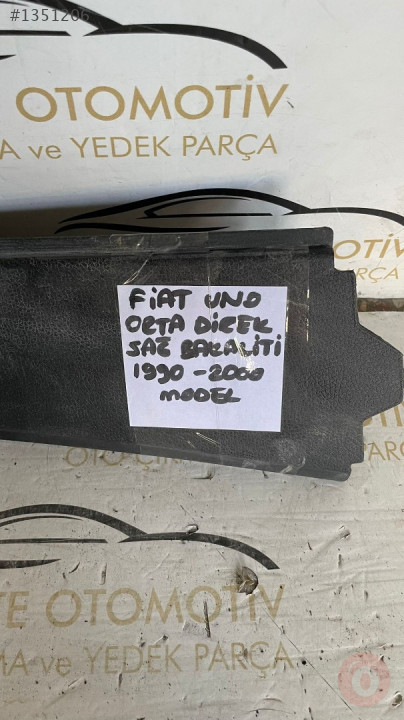 #1351206
OTOMOTİV
A ve YEDEK PARÇA
OTİV
PARÇA
FİAT UNO
ORTA DİREK
SAĞ BAKALİTİ
1990-2000
MODEL
TE OTOMOTİV
MA ve YEDEK PARÇA